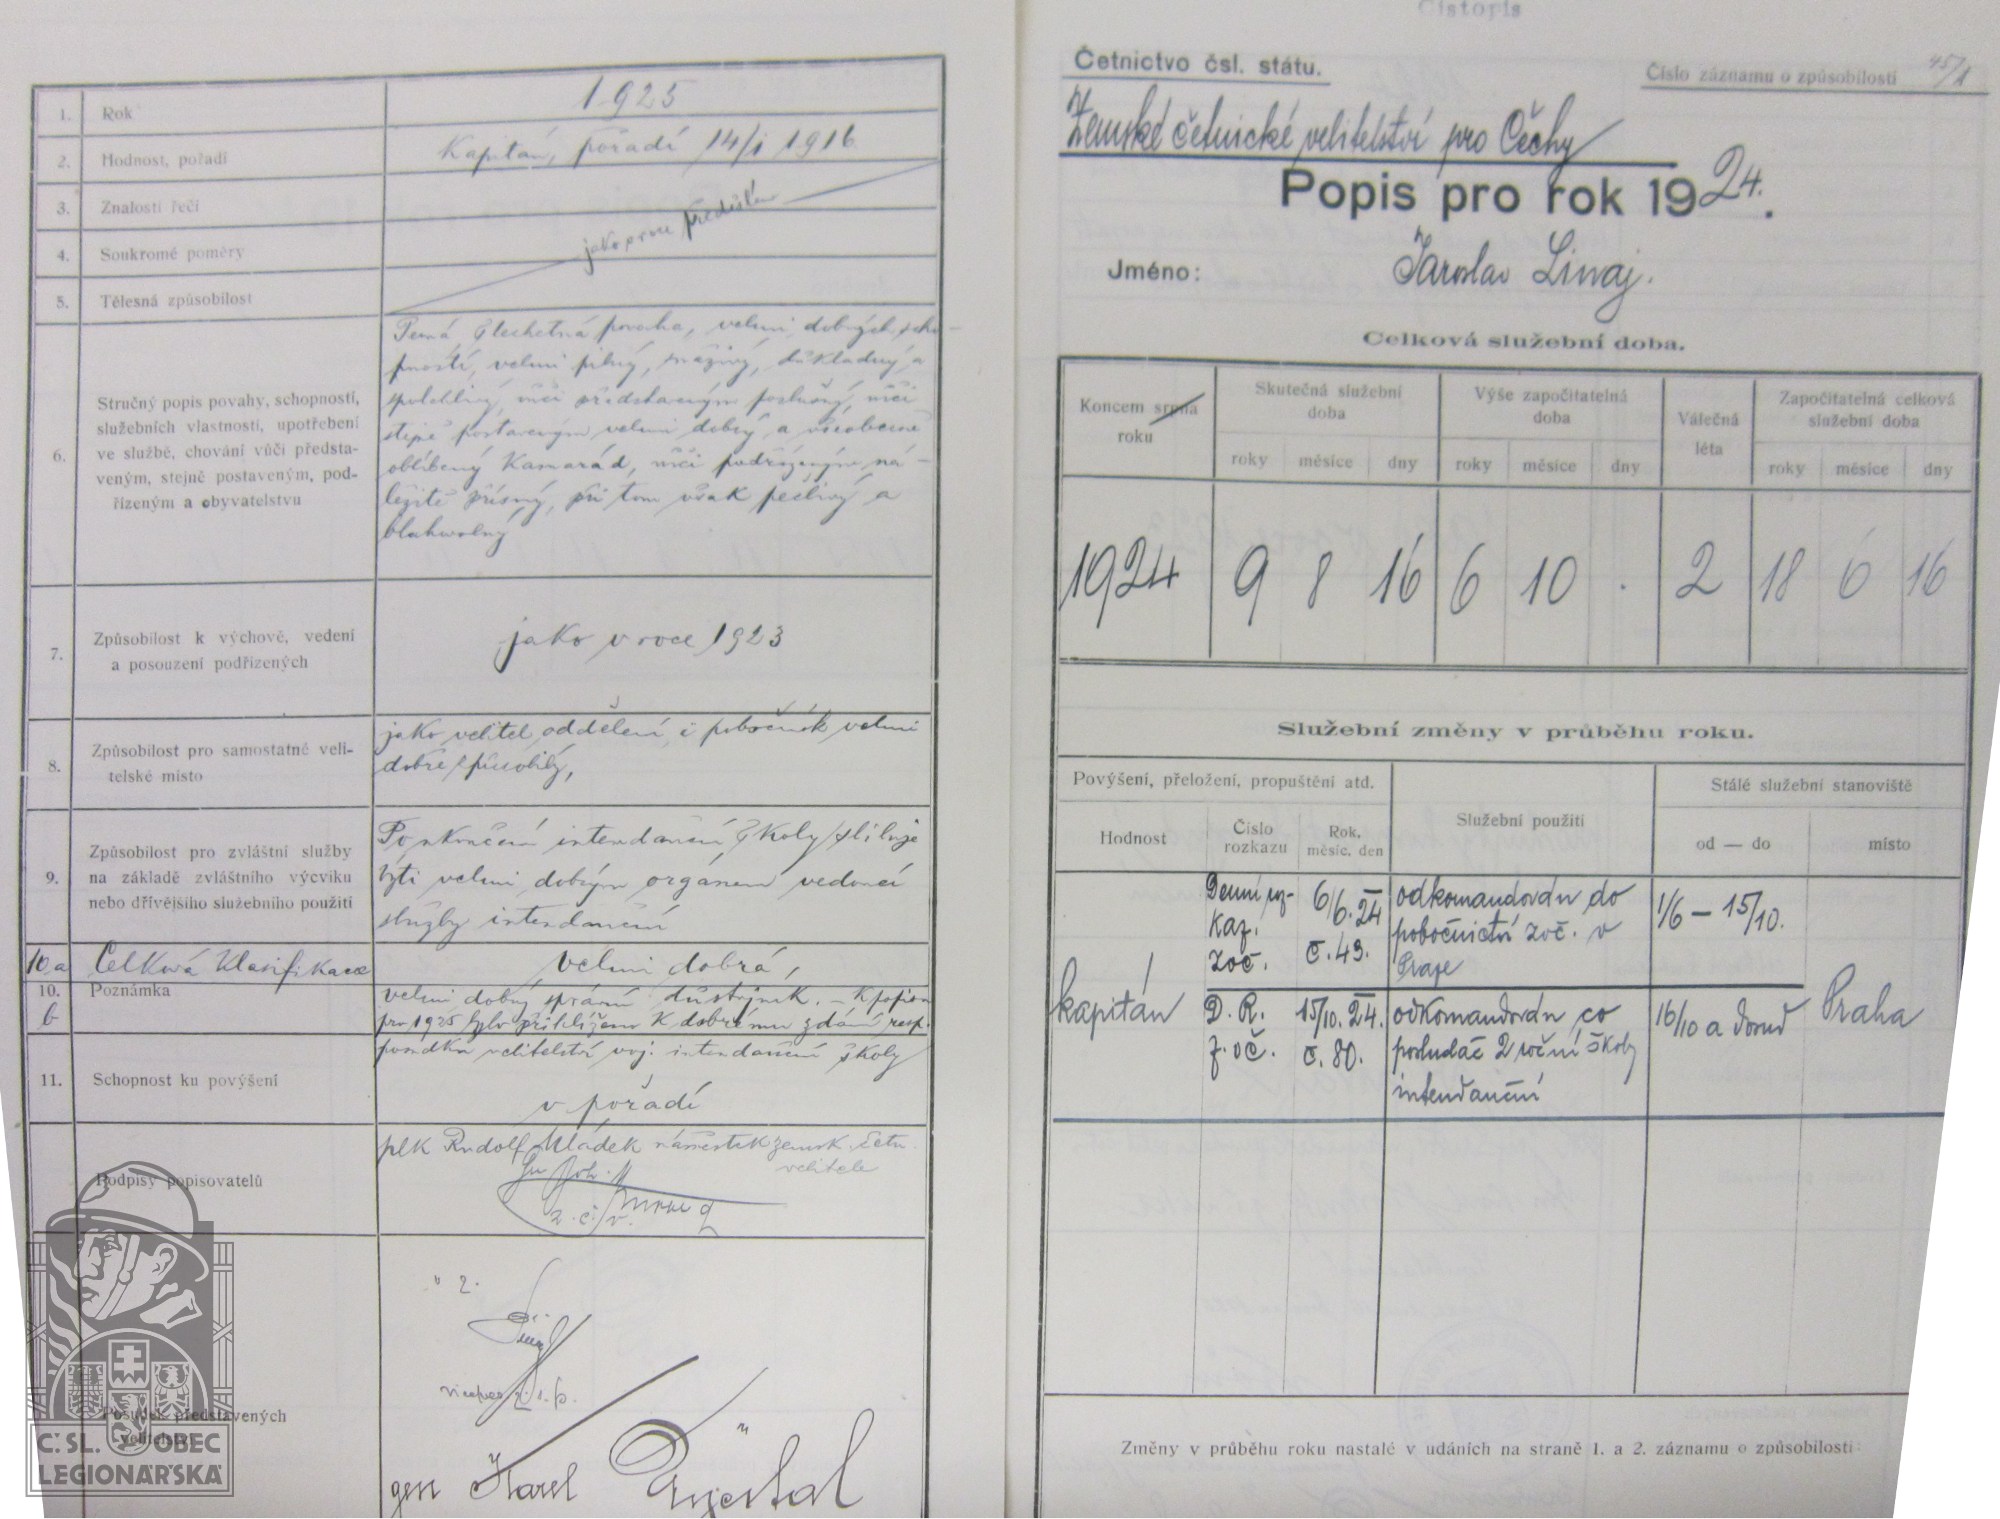 1. Rok 1925
2. Hodnost, pořadí Kapitán, pořadí 14/I 1916
3. Znalosti řečí
4. Soukromé poměry jako prve předešlém
5. Tělesná způsobilost
6. Stručný popis povahy, schopností,
služebních vlastností, upotřebení
ve službě, chování vůči představeným, stejně postaveným, podřízeným a obyvatelstvu
Pevná šlechetná povaha, velmi dobrých scho-
pností, velmi pilný, snaživý, důkladný a
spolehlivý, vůči představeným poslušný, vůči
stejně postaveným velmi dobrý a všeobecně
oblíbený Kamarád, vůči podřízeným ná-
ležitě přísný, při tom však pečlivý a
blahovolný
7. Způsobilost k výchově, vedení
a posouzení podřízených
jako v roce 1923
8. Způsobilost pro samostatné veli-
telské místo
jako velitel oddělení i pobočník velmi
dobře způsobilý,
9. Způsobilost pro zvláštní služby
na základě zvláštního výcviku
nebo dřívějšího služebního použití
Po skončení intendanční školy slibuje
býti velmi dobrým orgánem vedoucí
služby intendanční
10.a Celková klasifikace velmi dobrá,
10. b Poznámka
velmi dobrý správní důstojník. – K popisu
pro 1925 bylo přihlíženo k dobrému zdání resp.
posudku velitelství voj. intendanční školy
11. Schopnost ku povýšení
v pořadí
Podpisy popisovatelů
plk Rudolf Mládek náměstek zemsk. četn.
velitele
z. č. v.
Posudek představených
velitelství
gen Karel
Č.SL. OBEC
LEGIONÁŘSKÁ
Čistopis
Četnictvo čsl. státu.
Číslo záznamu o způsobilosti 45/1
Zemské četnické velitelství pro Čechy
Popis pro rok 1924.
Jméno: Jaroslav Limaj.
Celková služební doba.
Koncem srpna
roku
Skutečná služební
doba
Výše započitatelná
doba
Válečná
léta
Započitatelná celková
služební doba
roky měsíce dny roky měsíce dny roky měsíce dny
1924 9 8 16 6 10 . 2 18 6 16
Služební změny v průběhu roku.
Povýšení, přeložení, propuštění atd.
Služební použití
Stálé služební stanoviště
Hodnost
Číslo
rozkazu
Rok,
měsíc, den
od — do
místo
kapitán
Denní roz-
kaz.
zvč.
6/6. 24
č. 43.
odkomandován do
pobočnictví zvč. v
Praze
1/6 – 15/10.
D. R.
z. vč.
15/10. 24.
č. 80.
odkomandován co
posluchač 2 roční školy
intendanční
16/10 a dosud
Praha
Změny v průběhu roku nastalé v udáních na straně 1. a 2. záznamu o způsobilosti: